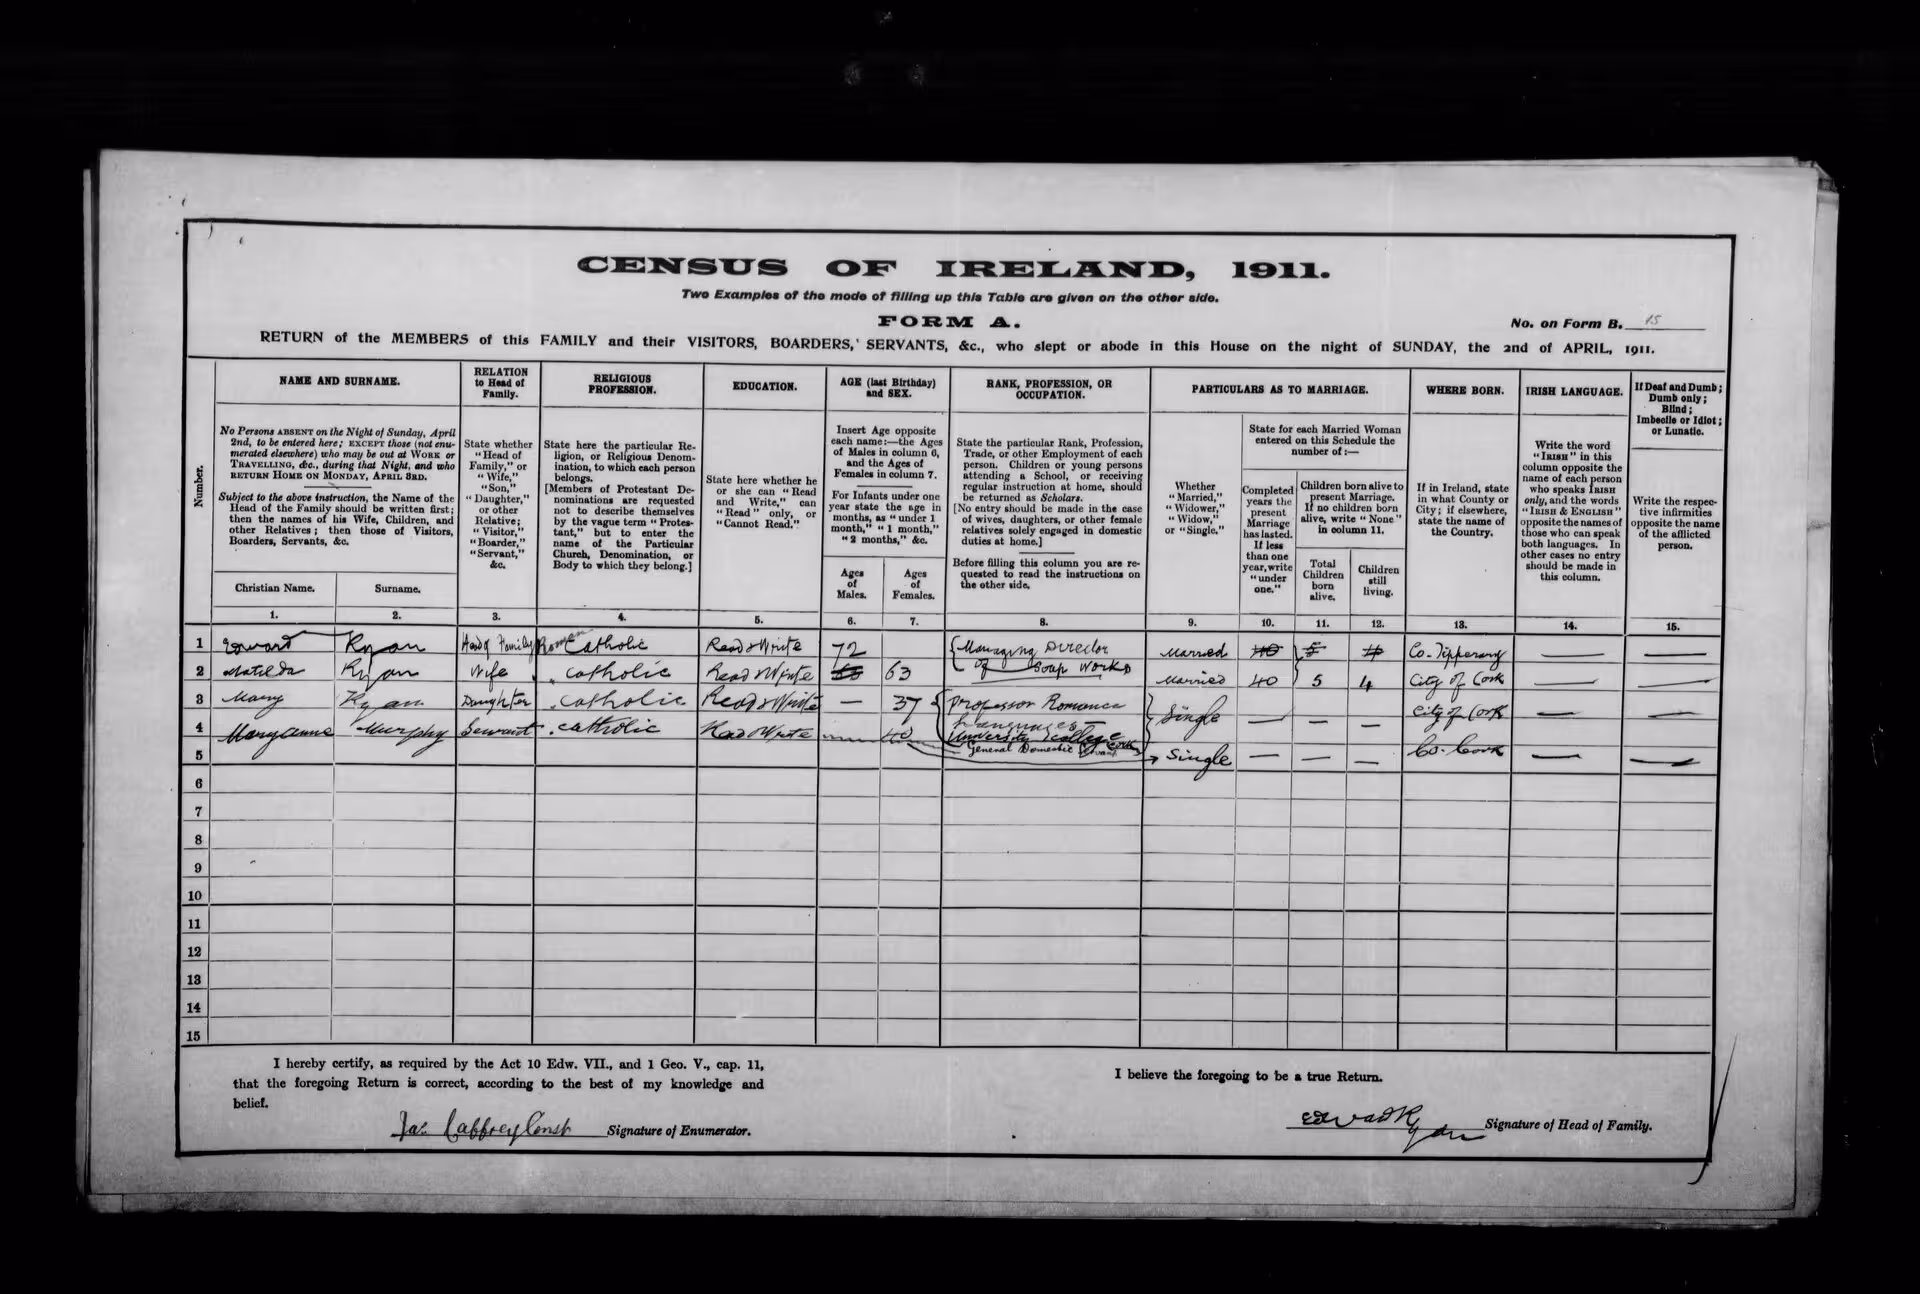 CENSUS OF IRELAND, 1911.
Two Examples of the mode of filling up this Table are given on the other side.
FORM A.
No. on Form B. 15
RETURN of the MEMBERS of this FAMILY and their VISITORS, BOARDERS, SERVANTS, &c., who slept or abode in this House on the night of SUNDAY, the 2nd of APRIL, 1911.
Number.
NAME AND SURNAME.
No Persons ABSENT on the Night of Sunday, April
2nd, to be entered here; EXCEPT those (not enu-
merated elsewhere) who may be out at WORK or
TRAVELLING, &c., during that Night, and who
RETURN HOME ON MONDAY, APRIL 3RD.
Subject to the above instruction, the Name of the
Head of the Family should be written first;
then the names of his Wife, Children, and
other Relatives; then those of Visitors,
Boarders, Servants, &c.
Christian Name.
Surname.
1.
2.
RELATION
to Head of
Family.
State whether
"Head of
Family," or
"Wife,"
"Son,"
"Daughter,"
or other
Relative;
"Visitor,"
"Boarder,"
"Servant,"
&c.
3.
RELIGIOUS
PROFESSION.
State here the particular Re-
ligion, or Religious Denom-
ination, to which each person
belongs.
[Members of Protestant De-
nominations are requested
not to describe themselves
by the vague term "Protes-
tant," but to enter the
name of the Particular
Church, Denomination, or
Body to which they belong.]
4.
EDUCATION.
State here whether he
or she can "Read
and Write," can
"Read" only, or
"Cannot Read."
5.
AGE (last Birthday)
and SEX.
Insert Age opposite
each name:—the Ages
of Males in column 6,
and the Ages of
Females in column 7.
For Infants under one
year state the age in
months, as "under 1
month," "1 month,"
"2 months," &c.
Ages
of
Males.
Ages
of
Females.
6.
7.
RANK, PROFESSION, OR
OCCUPATION.
State the particular Rank, Profession,
Trade, or other Employment of each
person. Children or young persons
attending a School, or receiving
regular instruction at home, should
be returned as Scholars.
[No entry should be made in the case
of wives, daughters, or other female
relatives solely engaged in domestic
duties at home.]
Before filling this column you are re-
quested to read the instructions on
the other side.
8.
PARTICULARS AS TO MARRIAGE.
Whether
"Married,"
"Widower,"
"Widow,"
or "Single."
9.
State for each Married Woman
entered on this Schedule the
number of:—
Completed
years the
present
Marriage
has lasted.
If less
than one
year, write
"under
one."
10.
Children born alive to
present Marriage.
If no children born
alive, write "None"
in column 11.
Total
Children
born
alive.
11.
Children
still
living.
12.
WHERE BORN.
If in Ireland, state
in what County or
City; if elsewhere,
state the name of
the Country.
13.
IRISH LANGUAGE.
Write the word
"IRISH" in this
column opposite the
name of each person
who speaks IRISH
only, and the words
"IRISH & ENGLISH"
opposite the names of
those who can speak
both languages. In
other cases no entry
should be made in
this column.
14.
If Deaf and Dumb;
Dumb only;
Blind;
Imbecile or Idiot;
or Lunatic.
Write the respec-
tive infirmities
opposite the name
of the afflicted
person.
15.
1 Edward Ryan Head of Family Roman Catholic Read & Write 72 Managing Director Married 40 5 4 Co. Tipperary — —
2 Matilda Ryan Wife " Catholic Read & Write 63 of Soap Works Married 40 5 4 City of Cork — —
3 Mary Ryan Daughter Catholic Read & Write — 37 Professor Romance Single — — — City of Cork — —
Languages
4 Maryanne Murphy Servant Catholic Read & Write 40 University College Cork
General Domestic Servant Single — — — Co. Cork — —
5
6
7
8
9
10
11
12
13
14
15
I hereby certify, as required by the Act 10 Edw. VII., and 1 Geo. V., cap. 11,
that the foregoing Return is correct, according to the best of my knowledge and
belief.
Jas Caffrey Const Signature of Enumerator.
I believe the foregoing to be a true Return.
Edward Ryan Signature of Head of Family.